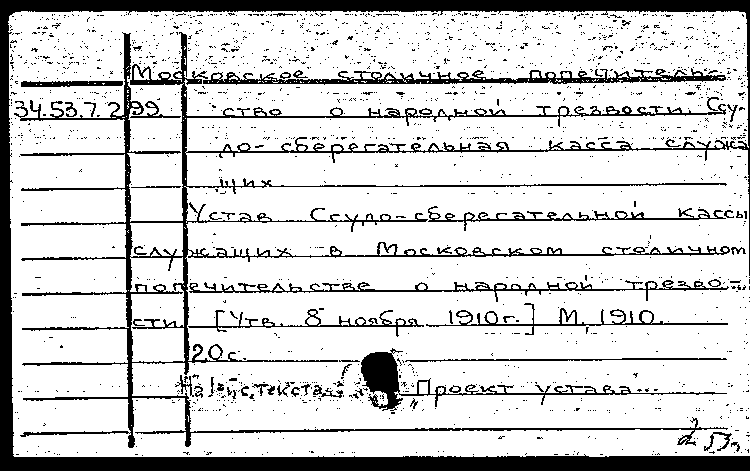 Московское столичное попечитель-
34.53.7.2.99. ство о народной трезвости. Ссу-
до-сберегательная касса служа
щих.
Устав Ссудо-сберегательной кассы
служащих в Московском столичном
попечительстве о народной трезво-
сти. [Утв. 8 ноября 1910г.] М., 1910.
20с.
На 1-й с. текста: „Проект устава...